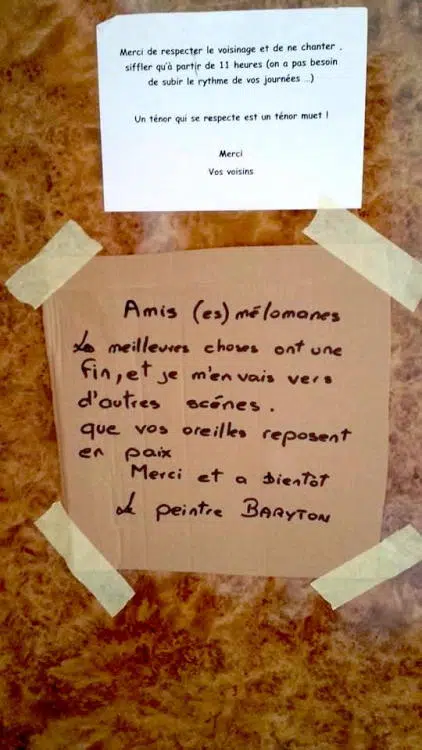 Merci de respecter le voisinage et de ne chanter ,
siffler qu'à partir de 11 heures (on a pas besoin
de subir le rythme de vos journées ...)
Un ténor qui se respecte est un ténor muet !
Merci
Vos voisins
Amis (es) mélomanes
Les meilleures choses ont une
fin, et je m'en vais vers
d'autres scénes.
que vos oreilles reposent
en paix
Merci et a bientôt
Le peintre BARYTON